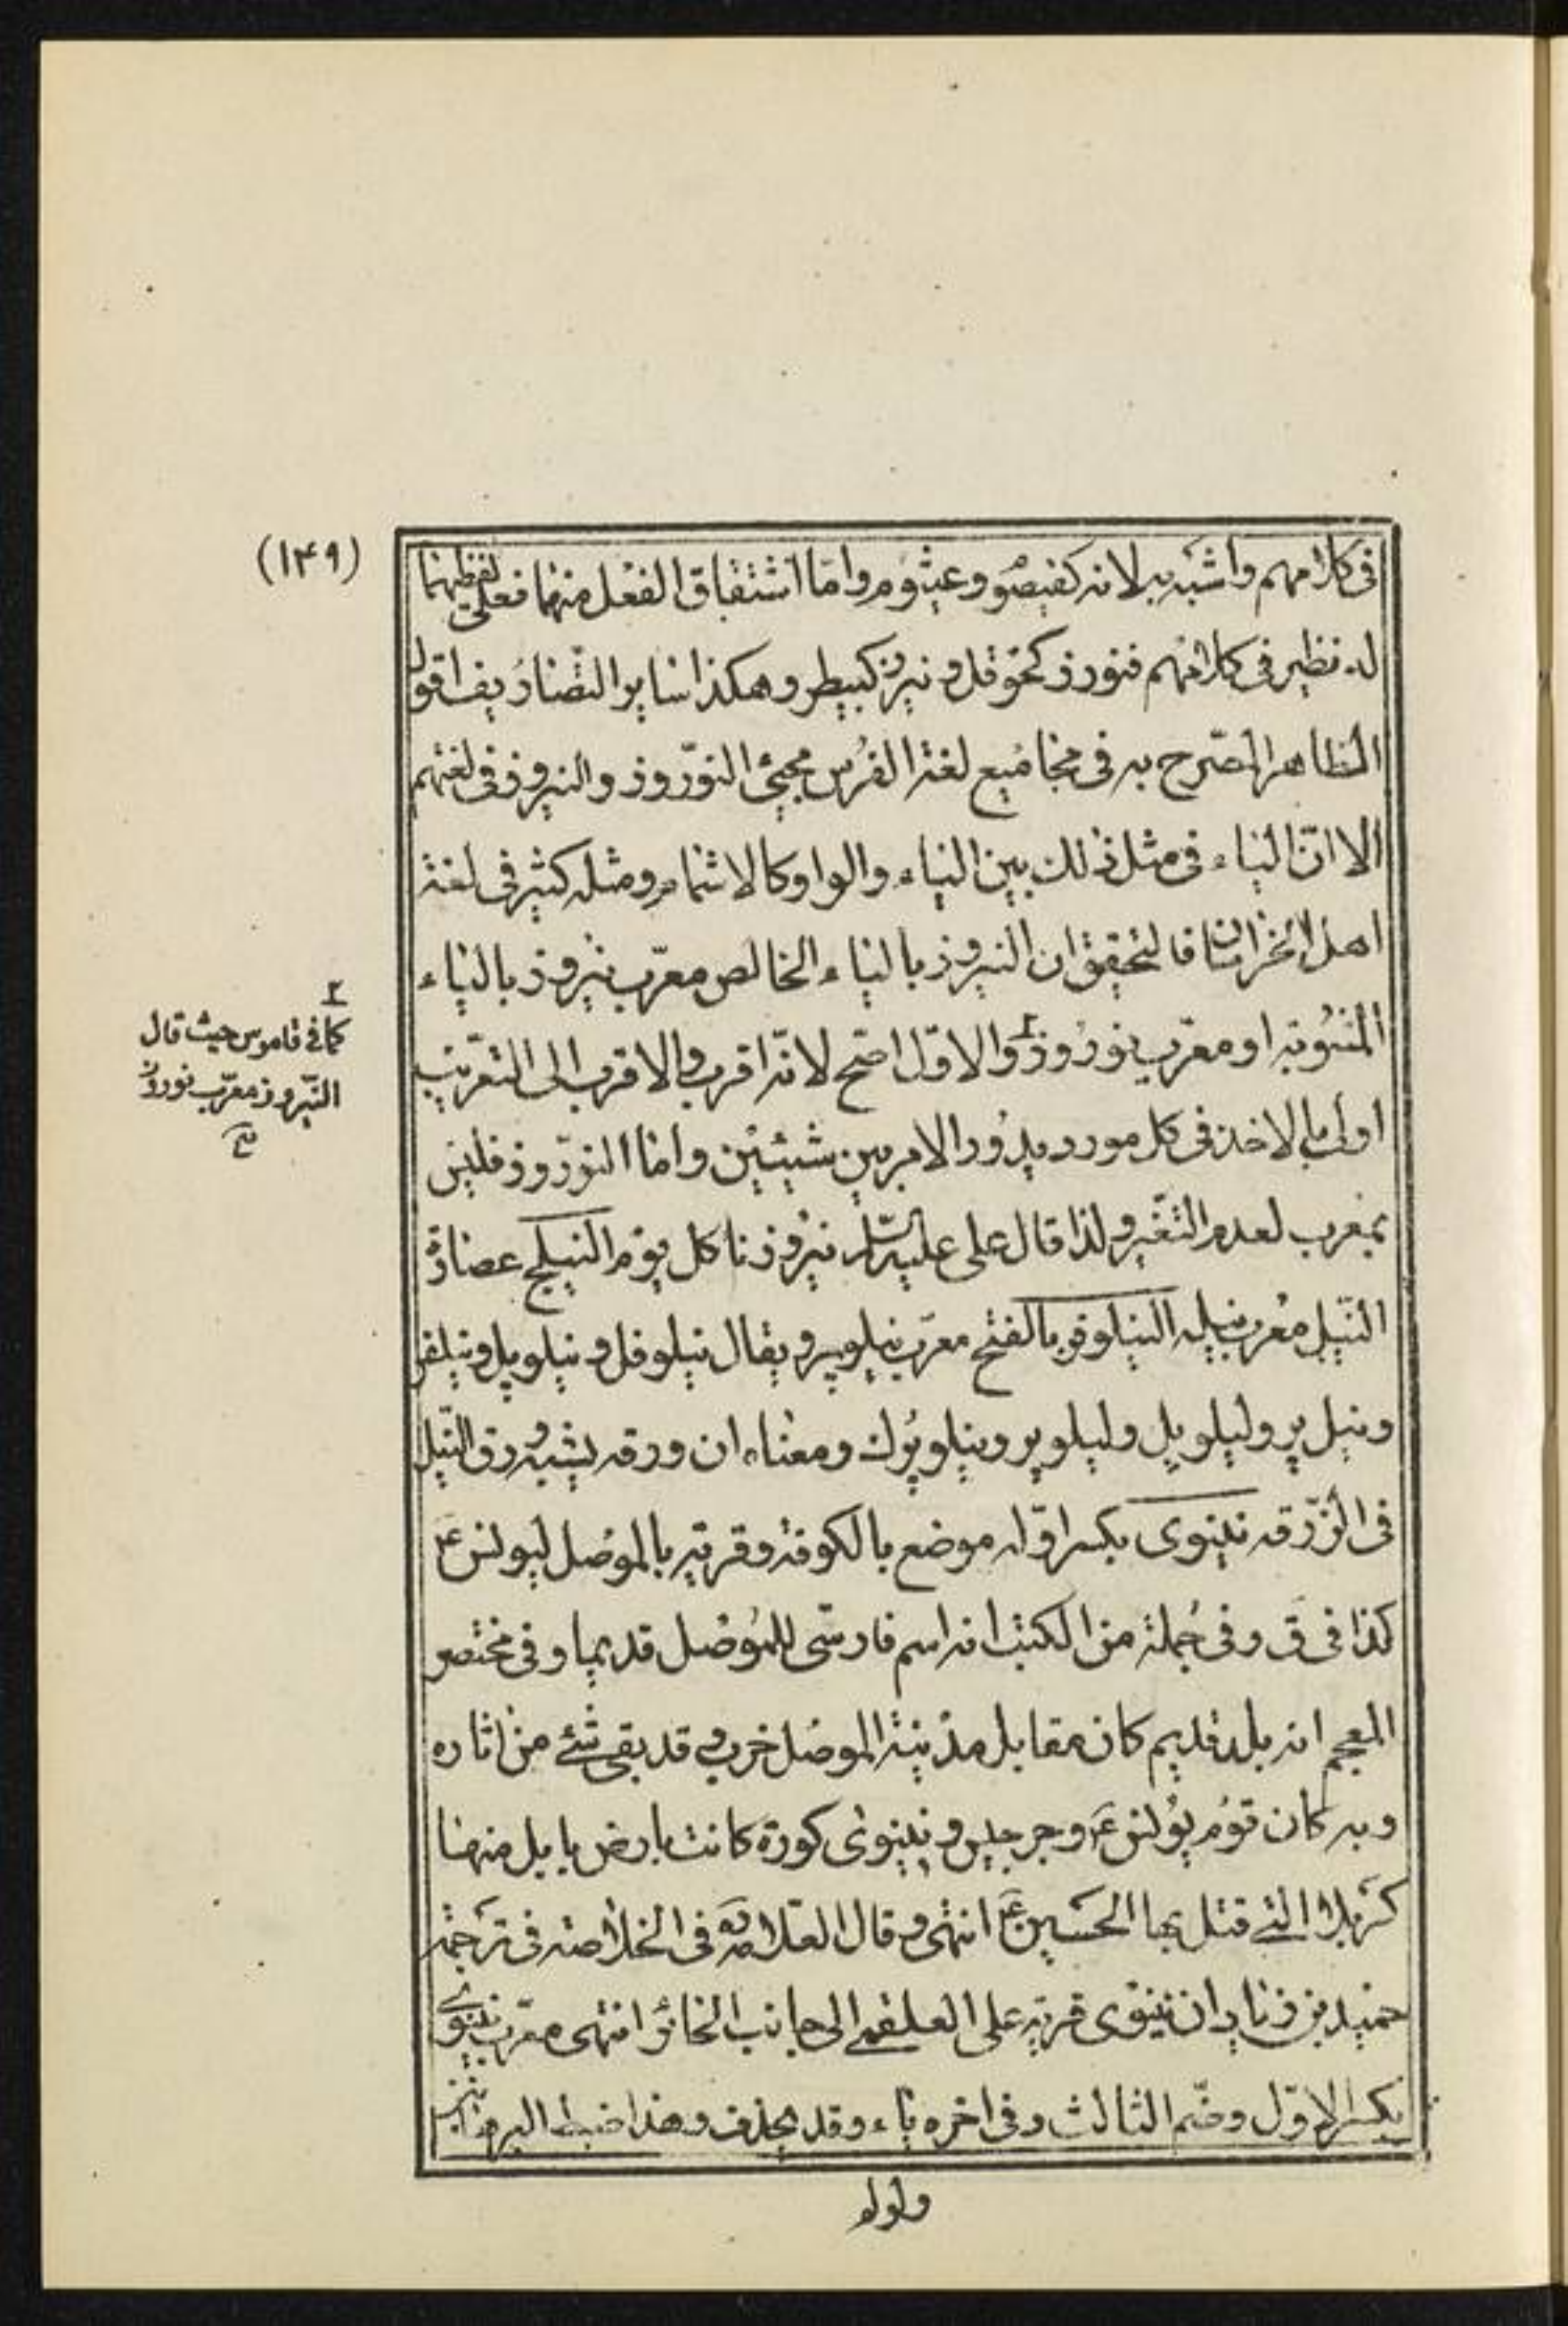 (۱۴۹)
فى كلامهم واشبه به لانه كقيصوم وعيثوم واما اشتقاق الفعل منهما فعلى لفظيهما
له نظير فى كلامهم فنورز كحوقل ونيرز كبيطر وهكذا ساير التصاريف اقول
الظاهر المصّرح به فى مجاميع لغة الفرس مجيئ النوّروز والنيروز فى لغتهم
الا انّ الياء فى مثل ذلك بين الياء والواو كالاشمام ومثله كثير فى لغة
اهل الخراسان فالتحقيق ان النيروز بالياء الخالص معرّب نيروز بالياء
المشوبة او معرّب نوروز۲ والاوّل اصّح لانّه اقرب والاقرب الى التعريب
اولى بالاخذ فى كل مورد يدور الامر بين شيئين واما النوّروز فليس
بمعرب لعدم التغيّر ولذا قال على عليه السّلم نيروزنا كل يوم النيلج عصارة
النّيل معرب نيله النيلوفر بالفتح معرّب نيلوپر ويقال نيلوفل ونيلوپل ونيلفر
ونيل پر وليلوپل وليلوپر ونيلوپرك ومعناه ان ورقه يشبه ورق النّيل
فى الزّرقة نينوى بكسر اوّله موضع بالكوفة وقرية بالموصل ليونس ع
كذا فى ق وفى جملة من الكتب انه اسم فارسّى للموصل قديما وفى مختصر
المعجم انه بلد قديم كان مقابل مدينة الموصل خرب وقد بقى شئ من اثاره
وبه كان قوم يونس ع وجرجيس ونينوى كورة كانت بارض بابل منها
كربلا التى قتل بها الحسين ع انتهى وقال العّلامة ره فى الخلاصة فى ترجمة
حميد بن زياد ان نينوى قرية على العلقمى الى جانب الحائر انتهى معرّب نينوى
بكسر الاوّل وضّم الثالث وفى اخره ياء وقد يحذف وهذا ضبط البر
واوله
۲
كما فى قاموس حيث قال
النّيروز معرّب نوروز